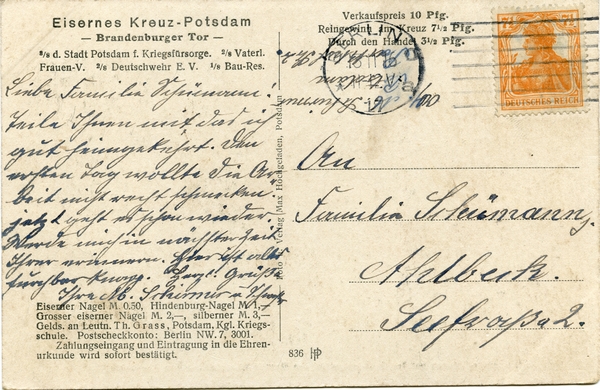 Eisernes Kreuz-Potsdam
— Brandenburger Tor —
3/8 d. Stadt Potsdam f. Kriegsfürsorge. 2/8 Vaterl.
Frauen-V. 2/8 Deutschwehr E. V. 1/8 Bau-Res.
Verkaufspreis 10 Pfg.
Reingewinn am Kreuz 7 1/2 Pfg.
Durch den Handel 3 1/2 Pfg.
7½ 7½
DEUTSCHES REICH
Liebe Familie Schümann!
Teile Ihnen mit das ich
gut heimgekehrt. Den
ersten Tag wollte die Ar-
beit nicht recht schmecken
jetzt geht es schon wieder.
Werde mich in nächster Zeit
Ihrer erinnern. Hier ist alles
furchtbar knapp. Herzl. Grüße
Ihre M.
An
Familie Schümann
Ahlbeck.
Seestraße 2.
Verlag Max Hochgeladen, Potsdam
Eiserner Nagel M. 0.50, Hindenburg-Nagel M. 1,—
Grosser eiserner Nagel M. 2,—, silberner M. 3,—
Gelds. an Leutn. Th. Grass, Potsdam, Kgl. Kriegs-
schule. Postscheckkonto: Berlin NW. 7, 3001.
Zahlungseingang und Eintragung in die Ehren-
urkunde wird sofort bestätigt.
836